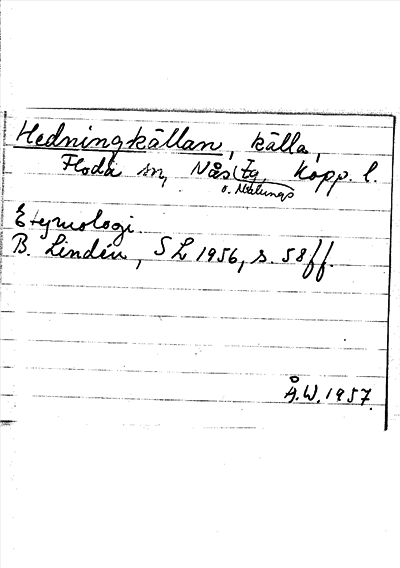 Hedningkällan, källa,
Floda sn, Nås tg, Kopp. l.
o. Malungs
Etymologi.
B. Lindén, SL 1956, s. 58 ff.
Å.W. 1957.